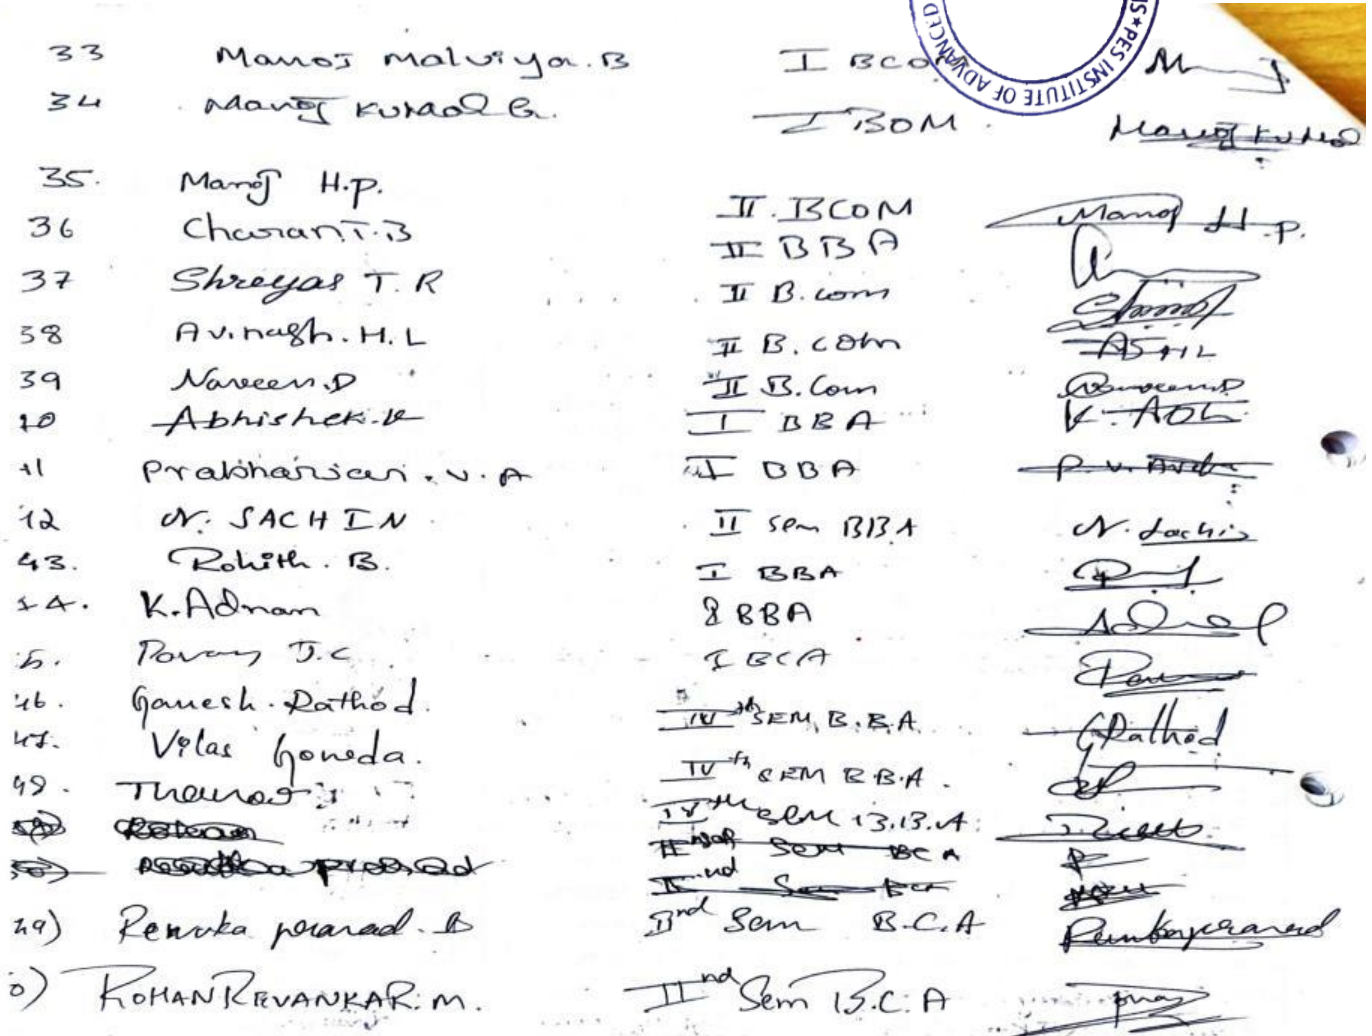 S★PES INSTITUTE OF ADVANCED
33 Manoj Malviya. B I BCOM
34 Manoj Kumar G. I BOM. Manoj Kumar
35. Manoj H.P. II. BCOM Manoj H.P.
36 Charan T.B II BBA
37 Shreyas T. R II B.com
38 Avinash. H. L II B. com ASHL
39 Naveen.D II B. Com Naveen.D
40 Abhishek. K I BBA K. Abh
41 V. A I BBA P. V.
42 N. SACHIN II Sem BBA N. Sachin
43. Rohith. B. I BBA
44. K. Adnan I BBA
45. Pavan J.C I BCA
46. Ganesh. Rathod. IV th SEM B.B.A G Rathod
47. Vilas Gowda. IV th SEM B.B.A.
48. IV th SEM B.B.A
II Sem BCA
II nd Sem BCA
49) Renuka prasad. B II nd Sem B.C.A Renukaprasad
50) ROHAN REVANKAR. M. II nd Sem B.C.A